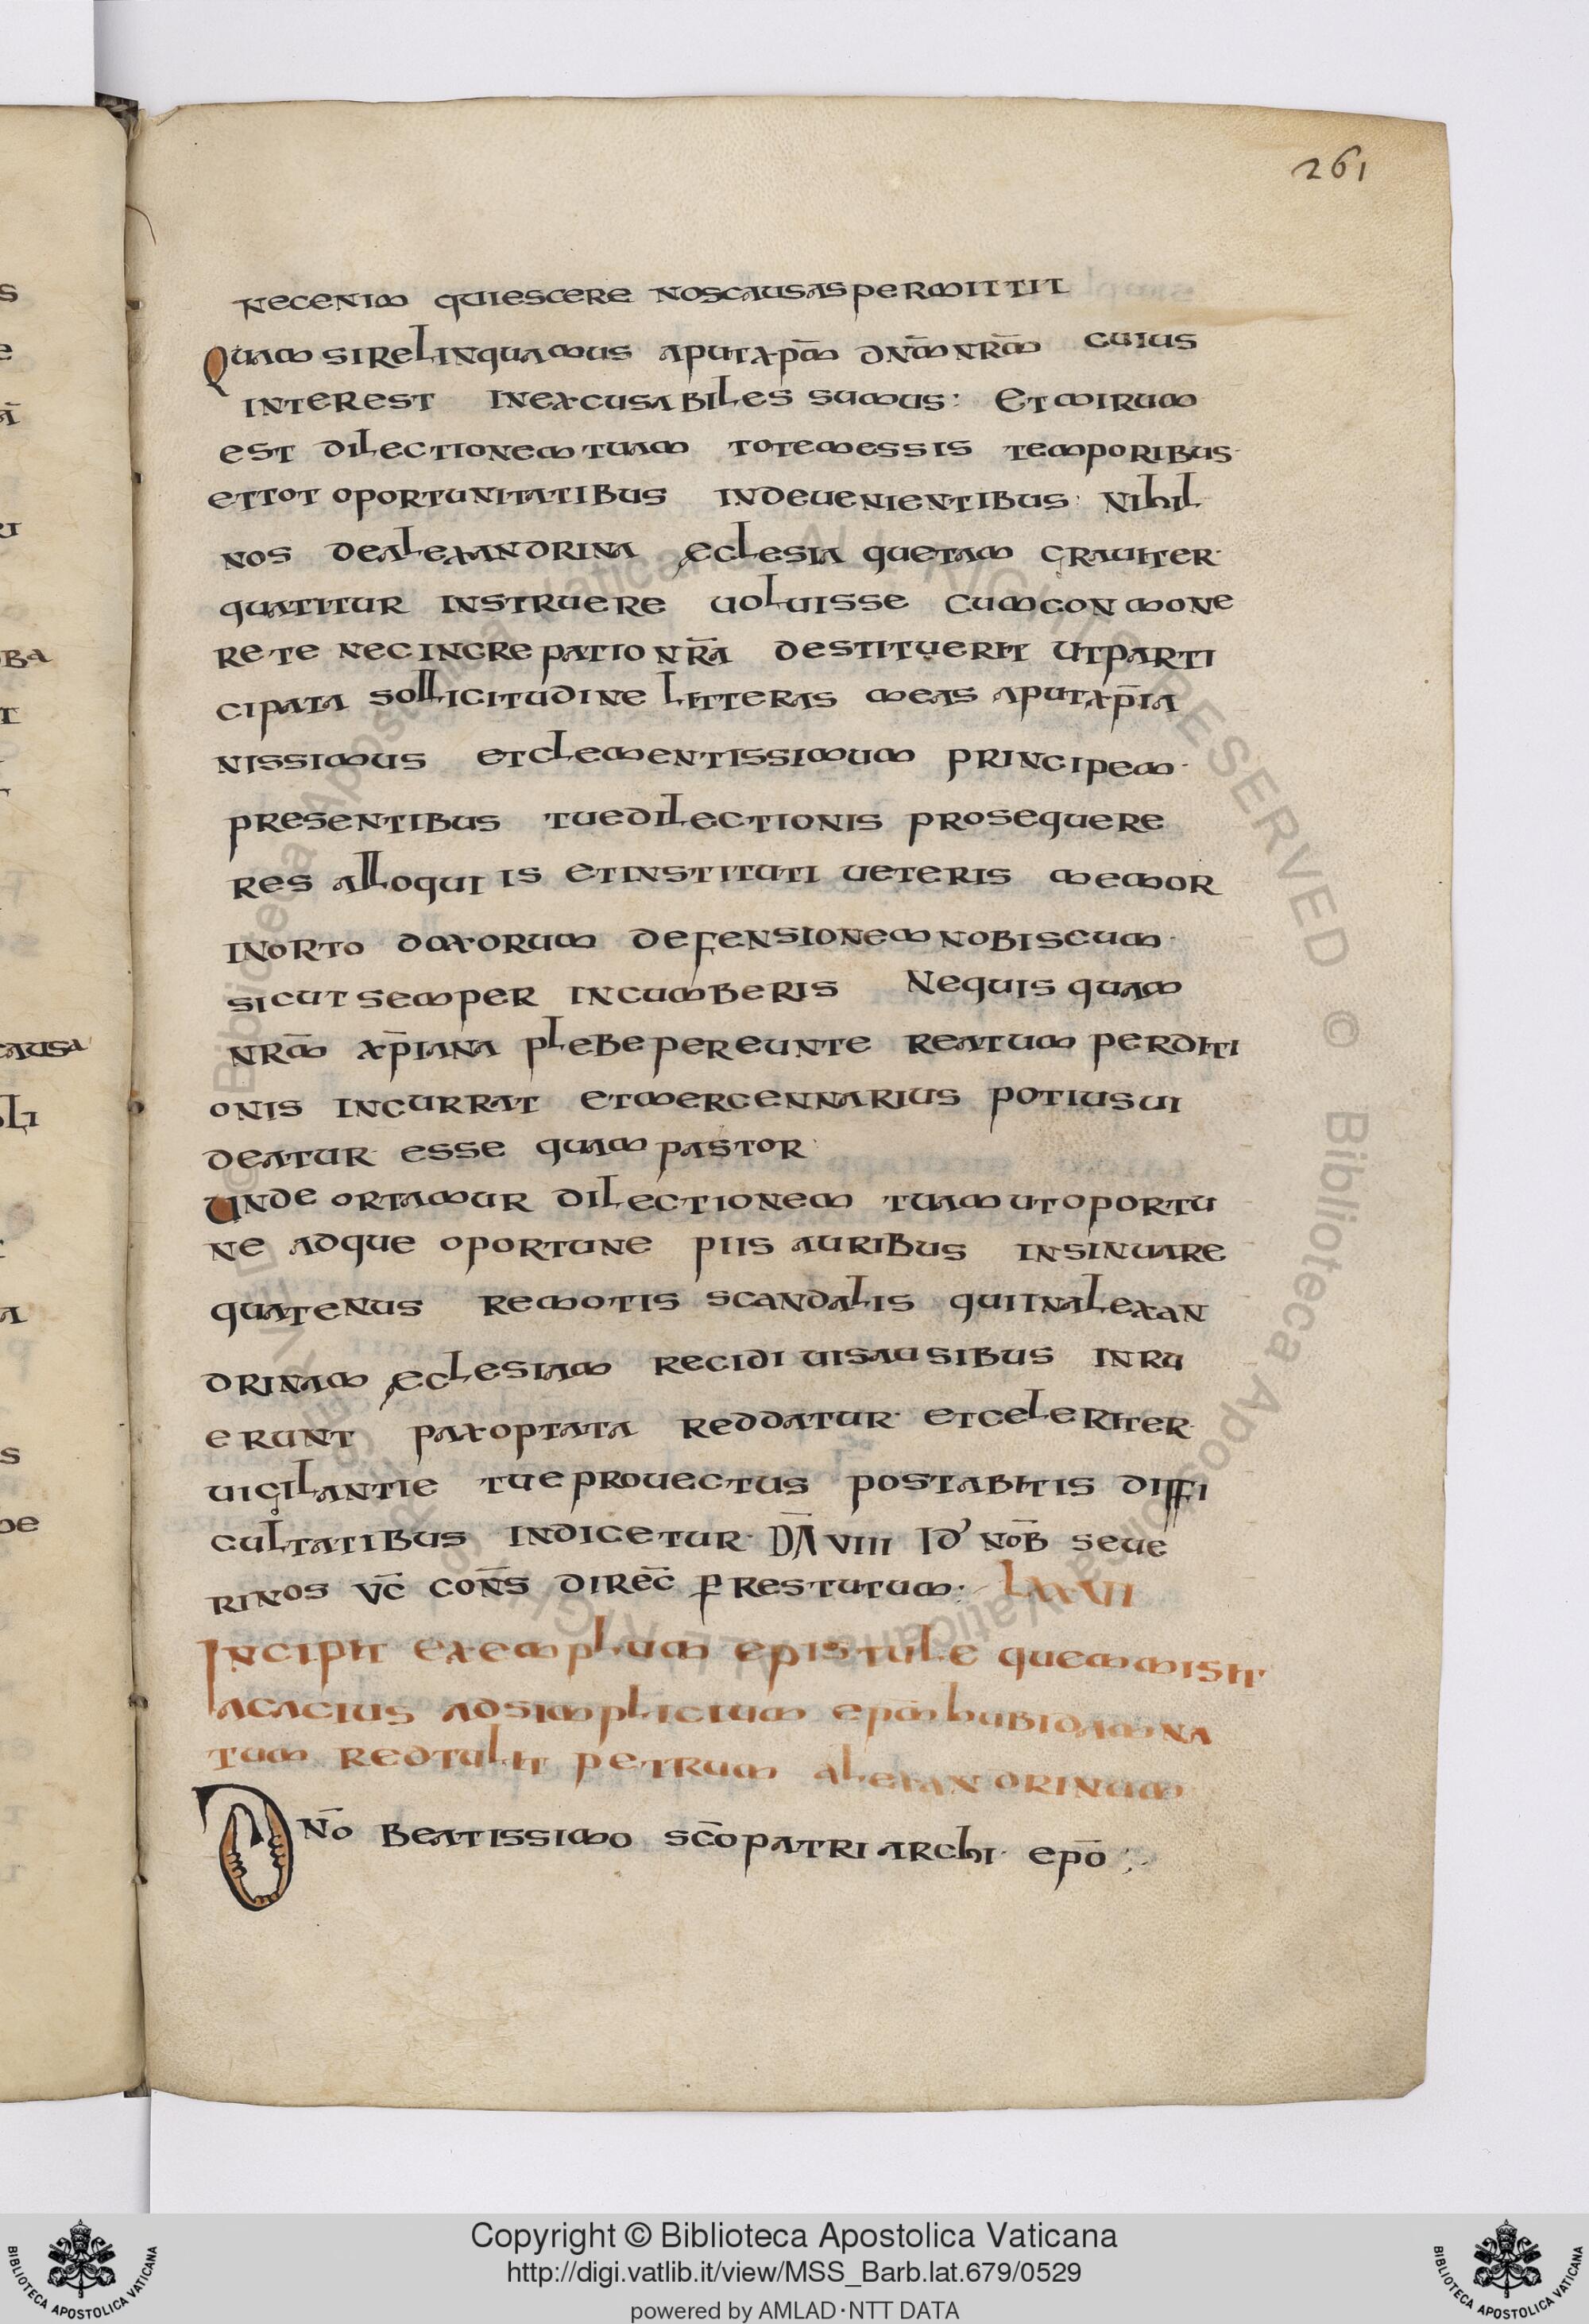 261
necenim quiescere noscausaspermittit
Quam sirelinquamus aput xp̄m dnm̄ nrm̄ cuius
interest inexcusabiles sumus: et mirum
est dilectionem tuam totemessis temporibus·
ettot oportunitatibus indeuenientibus: nihil
nos dealexandrina ęclesia quetam grauiter·
quatitur instruere uoluisse cumconmone
rete nec increpatio nr̄a destituerit utparti
cipata sollicitudine litteras meas aput xp̄ia
nissimus etclementissimum principem·
presentibus tuedilectionis prosequere
res alloquiis etinstituti ueteris memor
inorto doxorum defensionem nobiscum·
sicut semper incumberis Nequis quam
nrm̄ xp̄iana plebe pereunte reatum perditi
onis incurrat etmercennarius potius ui
deatur esse quam pastor·
Unde ortamur dilectionem tuam ut oportu
ne adque oportune piis auribus insinuare
quatenus remotis scandalis qui inalexan
drinam ęclesiam recidi uisausibus inru
erunt pax optata reddatur· etceleriter·
uigilantie tue prouectus postabitis diffi
cultatibus indicetur· DĀ VIII Id' nōb seue
rinos v̄c con̄s direc̄ ꝑ restutum: LXXVII
Incipit exemplum epistule quem misit
acacius adsimplicium epm̄ hubidamna
tum redtulit petrum alexandrinum
Dn̄o beatissimo sc̄o patri archi· epō ;·
Copyright © Biblioteca Apostolica Vaticana
http://digi.vatlib.it/view/MSS_Barb.lat.679/0529
powered by AMLAD·NTT DATA
BIBLIOTECA APOSTOLICA VATICANA
BIBLIOTECA APOSTOLICA VATICANA